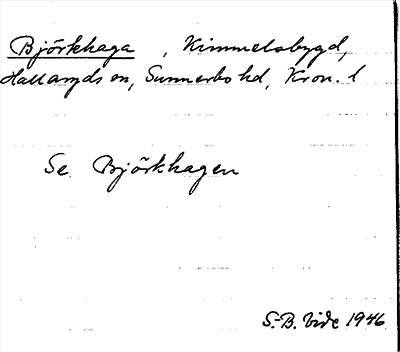 Björkhaga, Kimmelsbygd,
Hallaryds sn, Sunnerbo hd, Kron. l
Se Björkhagen
S.-B. Vide 1946